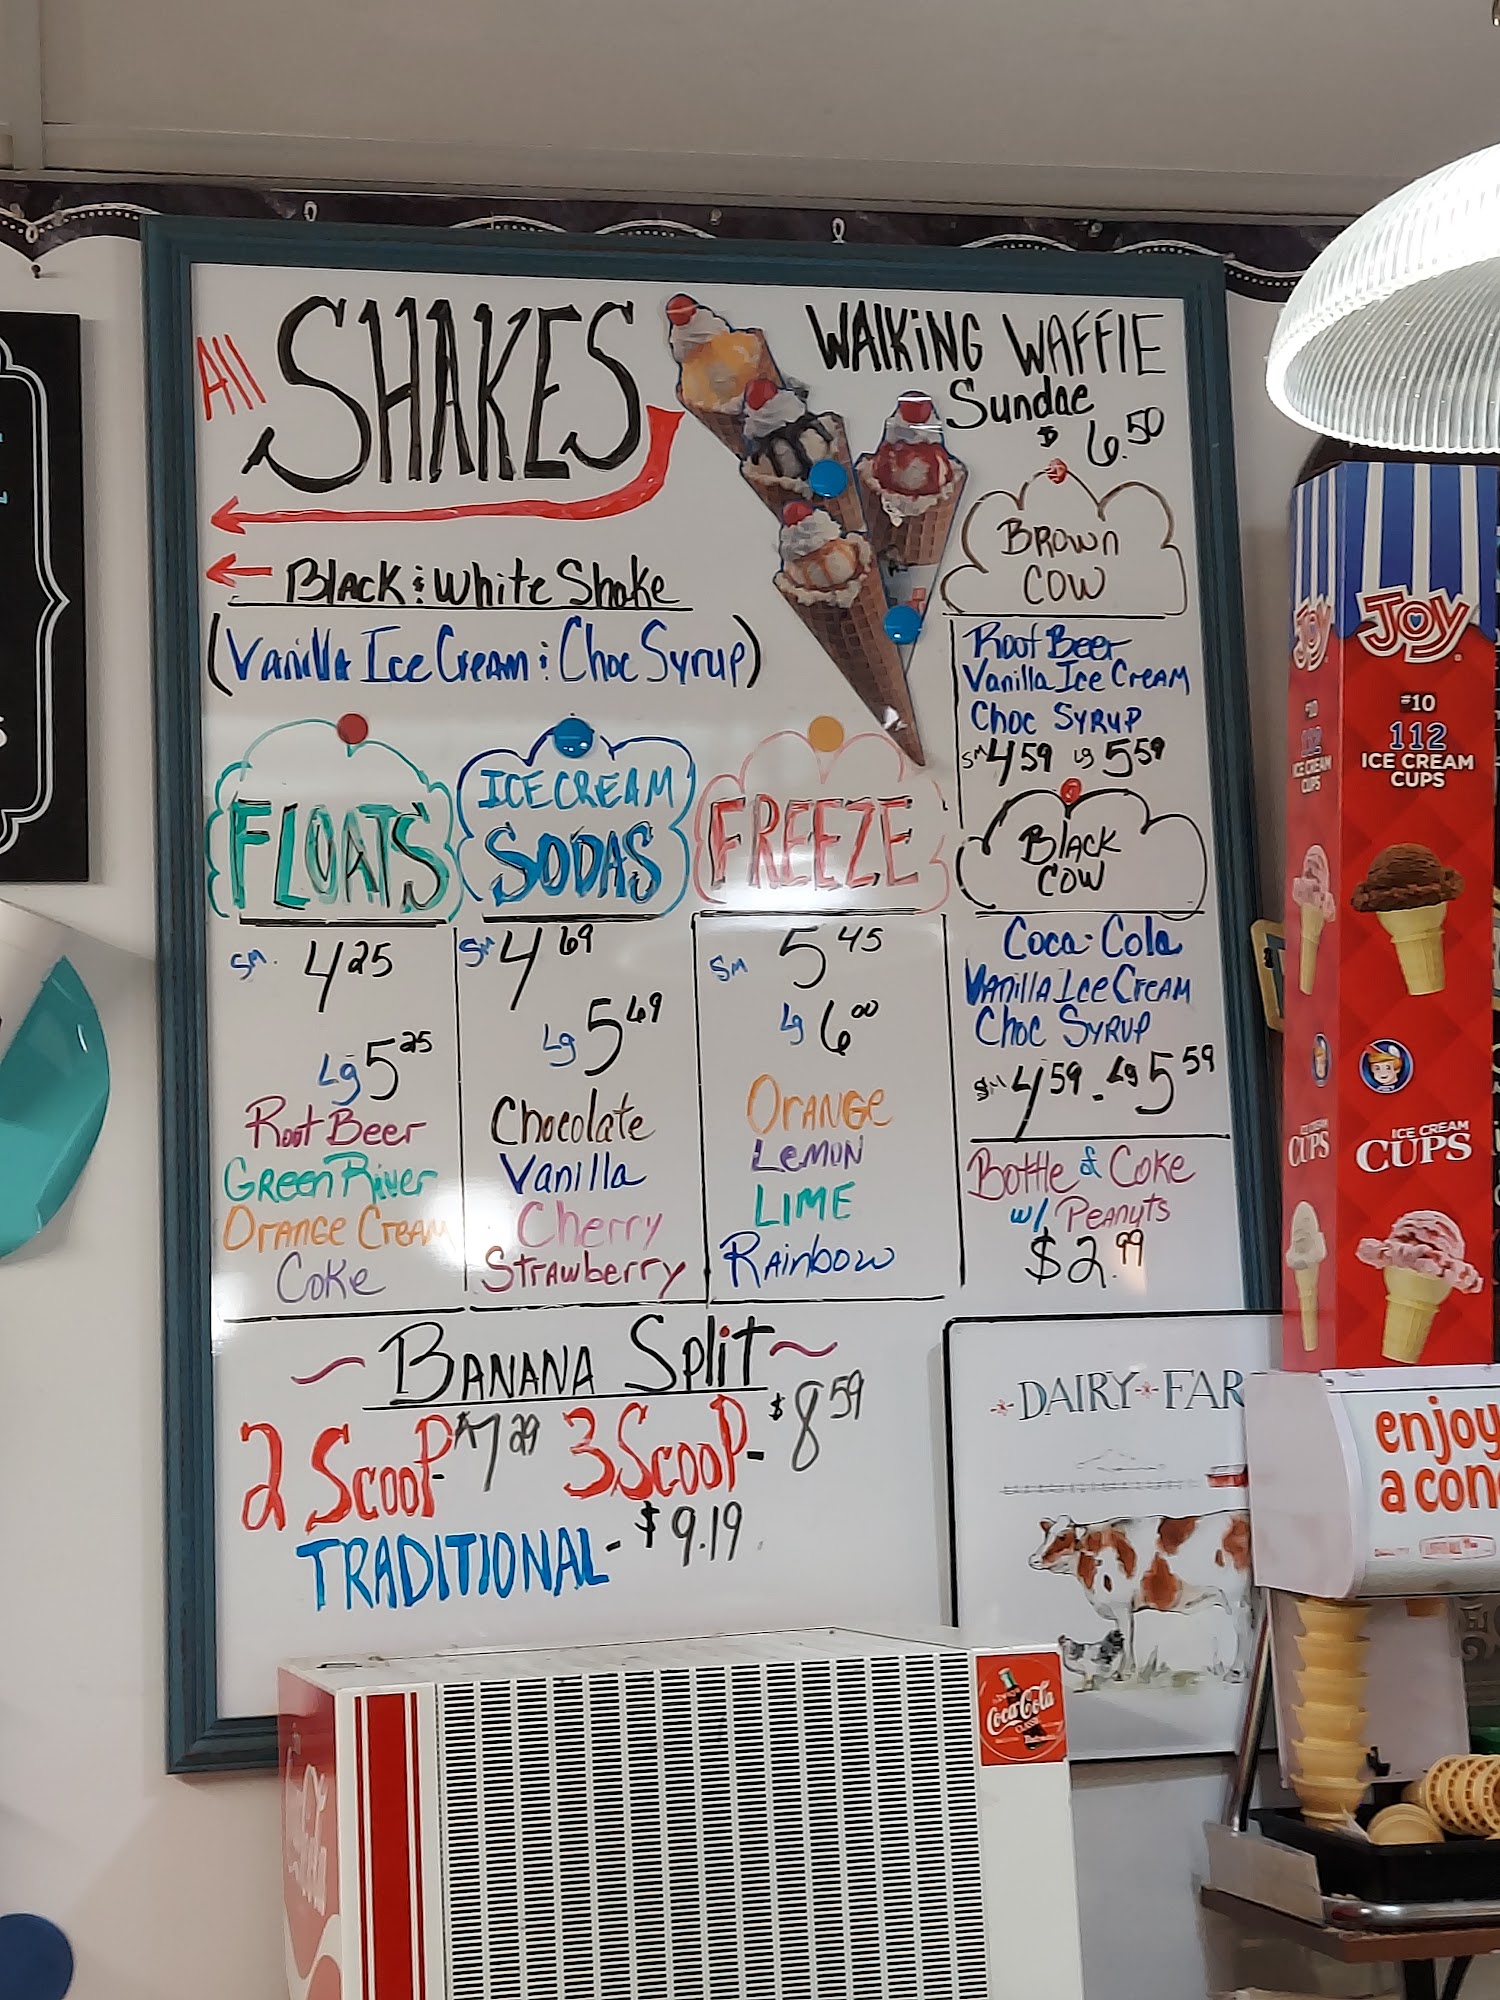 All SHAKES
WALKING WAFFLE
Sundae
$ 6.50
Black & White Shake
(Vanilla Ice Cream & Choc Syrup)
BROWN
COW
Root Beer
Vanilla Ice Cream
Choc SYRUP
SM 4 59 Lg 5 59
BLACK
COW
Coca-Cola
Vanilla Ice Cream
Choc SYRUP
SM 4 59 - Lg 5 59
Bottle of Coke
w/ Peanuts
$2.99
FLOATS
SM. 4 25
Lg 5 25
Root Beer
Green River
Orange Cream
Coke
ICE CREAM
SODAS
SM 4 69
Lg 5 69
Chocolate
Vanilla
Cherry
Strawberry
FREEZE
SM 5 45
Lg 6 00
ORANGE
LEMON
LIME
RAINBOW
~ BANANA Split ~
2 Scoop - $7 29 3 Scoop - $8 59
TRADITIONAL - $9.19
DAIRY FAR
JOY
#10
112
ICE CREAM
CUPS
ICE CREAM
CUPS
JOY
ICE CREAM
CUPS
CUPS
enjoy
a con
Coca-Cola
CLASSIC